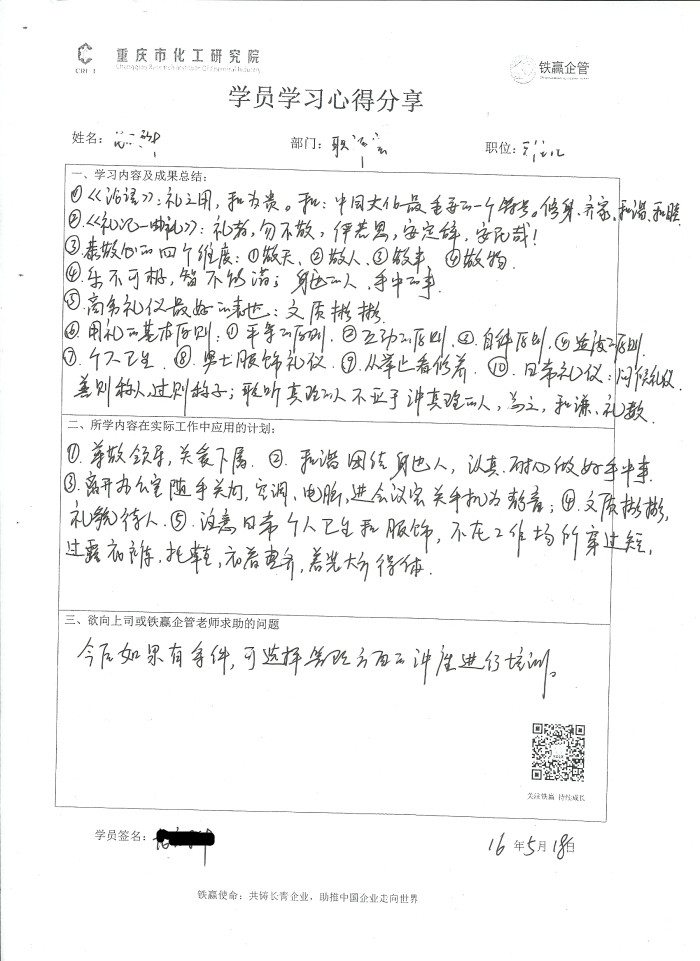 重庆市化工研究院
Chongqing Research Institute Of Chemical Industry
CRICI
铁赢企管
学员学习心得分享
姓名:
部门:
职位:
一、学习内容及成果总结:
①《论语》:礼之用,和为贵。和:中国文化最重要的一个特号。修身、齐家、和谐、和睦
②《礼记一曲礼》:礼者,勿不敬,俨若思,安定辞,安民哉!
③恭敬心的四个维度:①敬天、②敬人、③敬事 ④敬物.
④乐不可极,智不够诺;身边的人、手中的事.
⑤商务礼仪最好的表达:文质彬彬
⑥用礼的基本原则:①平等的原则.②互动的原则.③自律原则.④适度的原则.
⑦.个人卫生.⑧.男士服饰礼仪.⑨.从举止看修养.⑩.日常礼仪:问候礼仪
善则称人,过则称己;聆听真理的人不亚于讲真理的人,为之,和谦、礼敬.
二、所学内容在实际工作中应用的计划:
①.尊敬领导,关爱下属.②.和谐团结身边人,认真、耐心做好手中事
③.离开办公室随手关灯,空调、电脑,进会议室关手机为静音;④.文质彬彬,
礼貌待人.⑤.注意日常个人卫生和服饰,不在工作场所穿过短,
过露衣裤、拖鞋,衣着整齐,美观大方得体.
三、欲向上司或铁赢企管老师求助的问题
今后如果有条件,可选择管理方面的讲座进行培训。
关注铁赢 持续成长
学员签名:
16 年5月18日
铁赢使命:共铸长青企业,助推中国企业走向世界